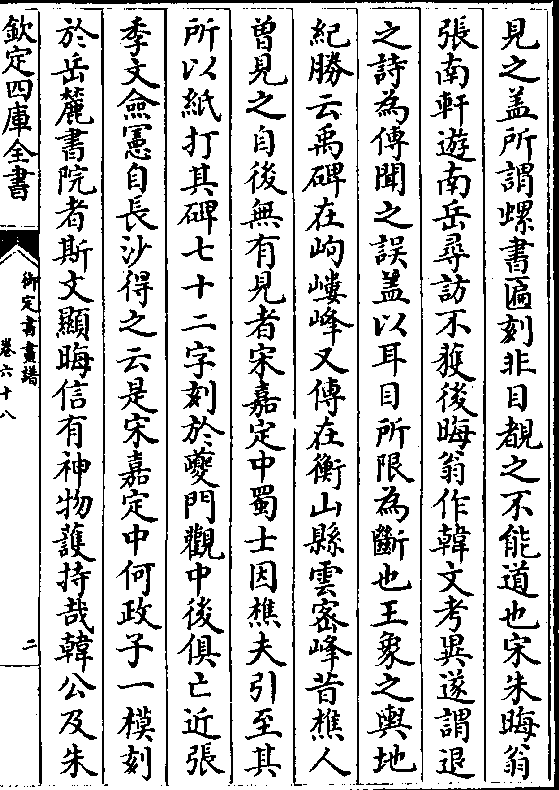 見之盖所謂螺書匾刻非目覩之不能道也宋朱晦翁
張南軒遊南岳尋訪不獲後晦翁作韓文考異遂謂退
之詩為傳聞之誤盖以耳目所限為斷也王象之輿地
紀勝云禹碑在岣嶁峰又傳在衡山縣雲密峰昔樵人
曽見之自後無有見者宋嘉定中蜀士因樵夫引至其
所以紙打其碑七十二字刻於夔門觀中後俱亡近張
季文僉憲自長沙得之云是宋嘉定中何政子一模刻
於岳麓書院者斯文顯晦信有神物護持哉韓公及朱
欽定四庫全書
御定書畫譜
卷六十八
二